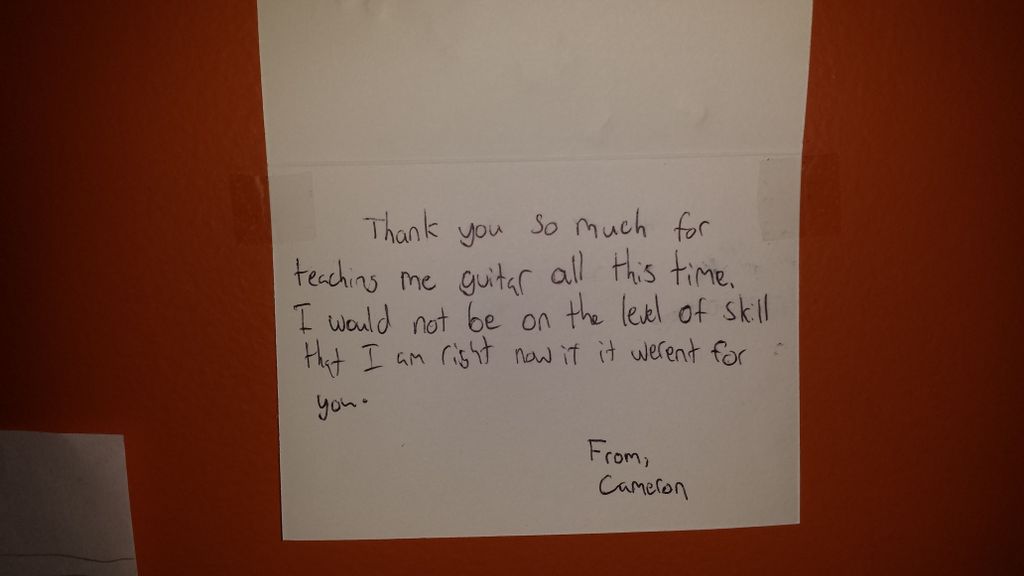 Thank you so much for
teaching me guitar all this time.
I would not be on the level of skill
that I am right now if it werent for
you.
From,
Cameron